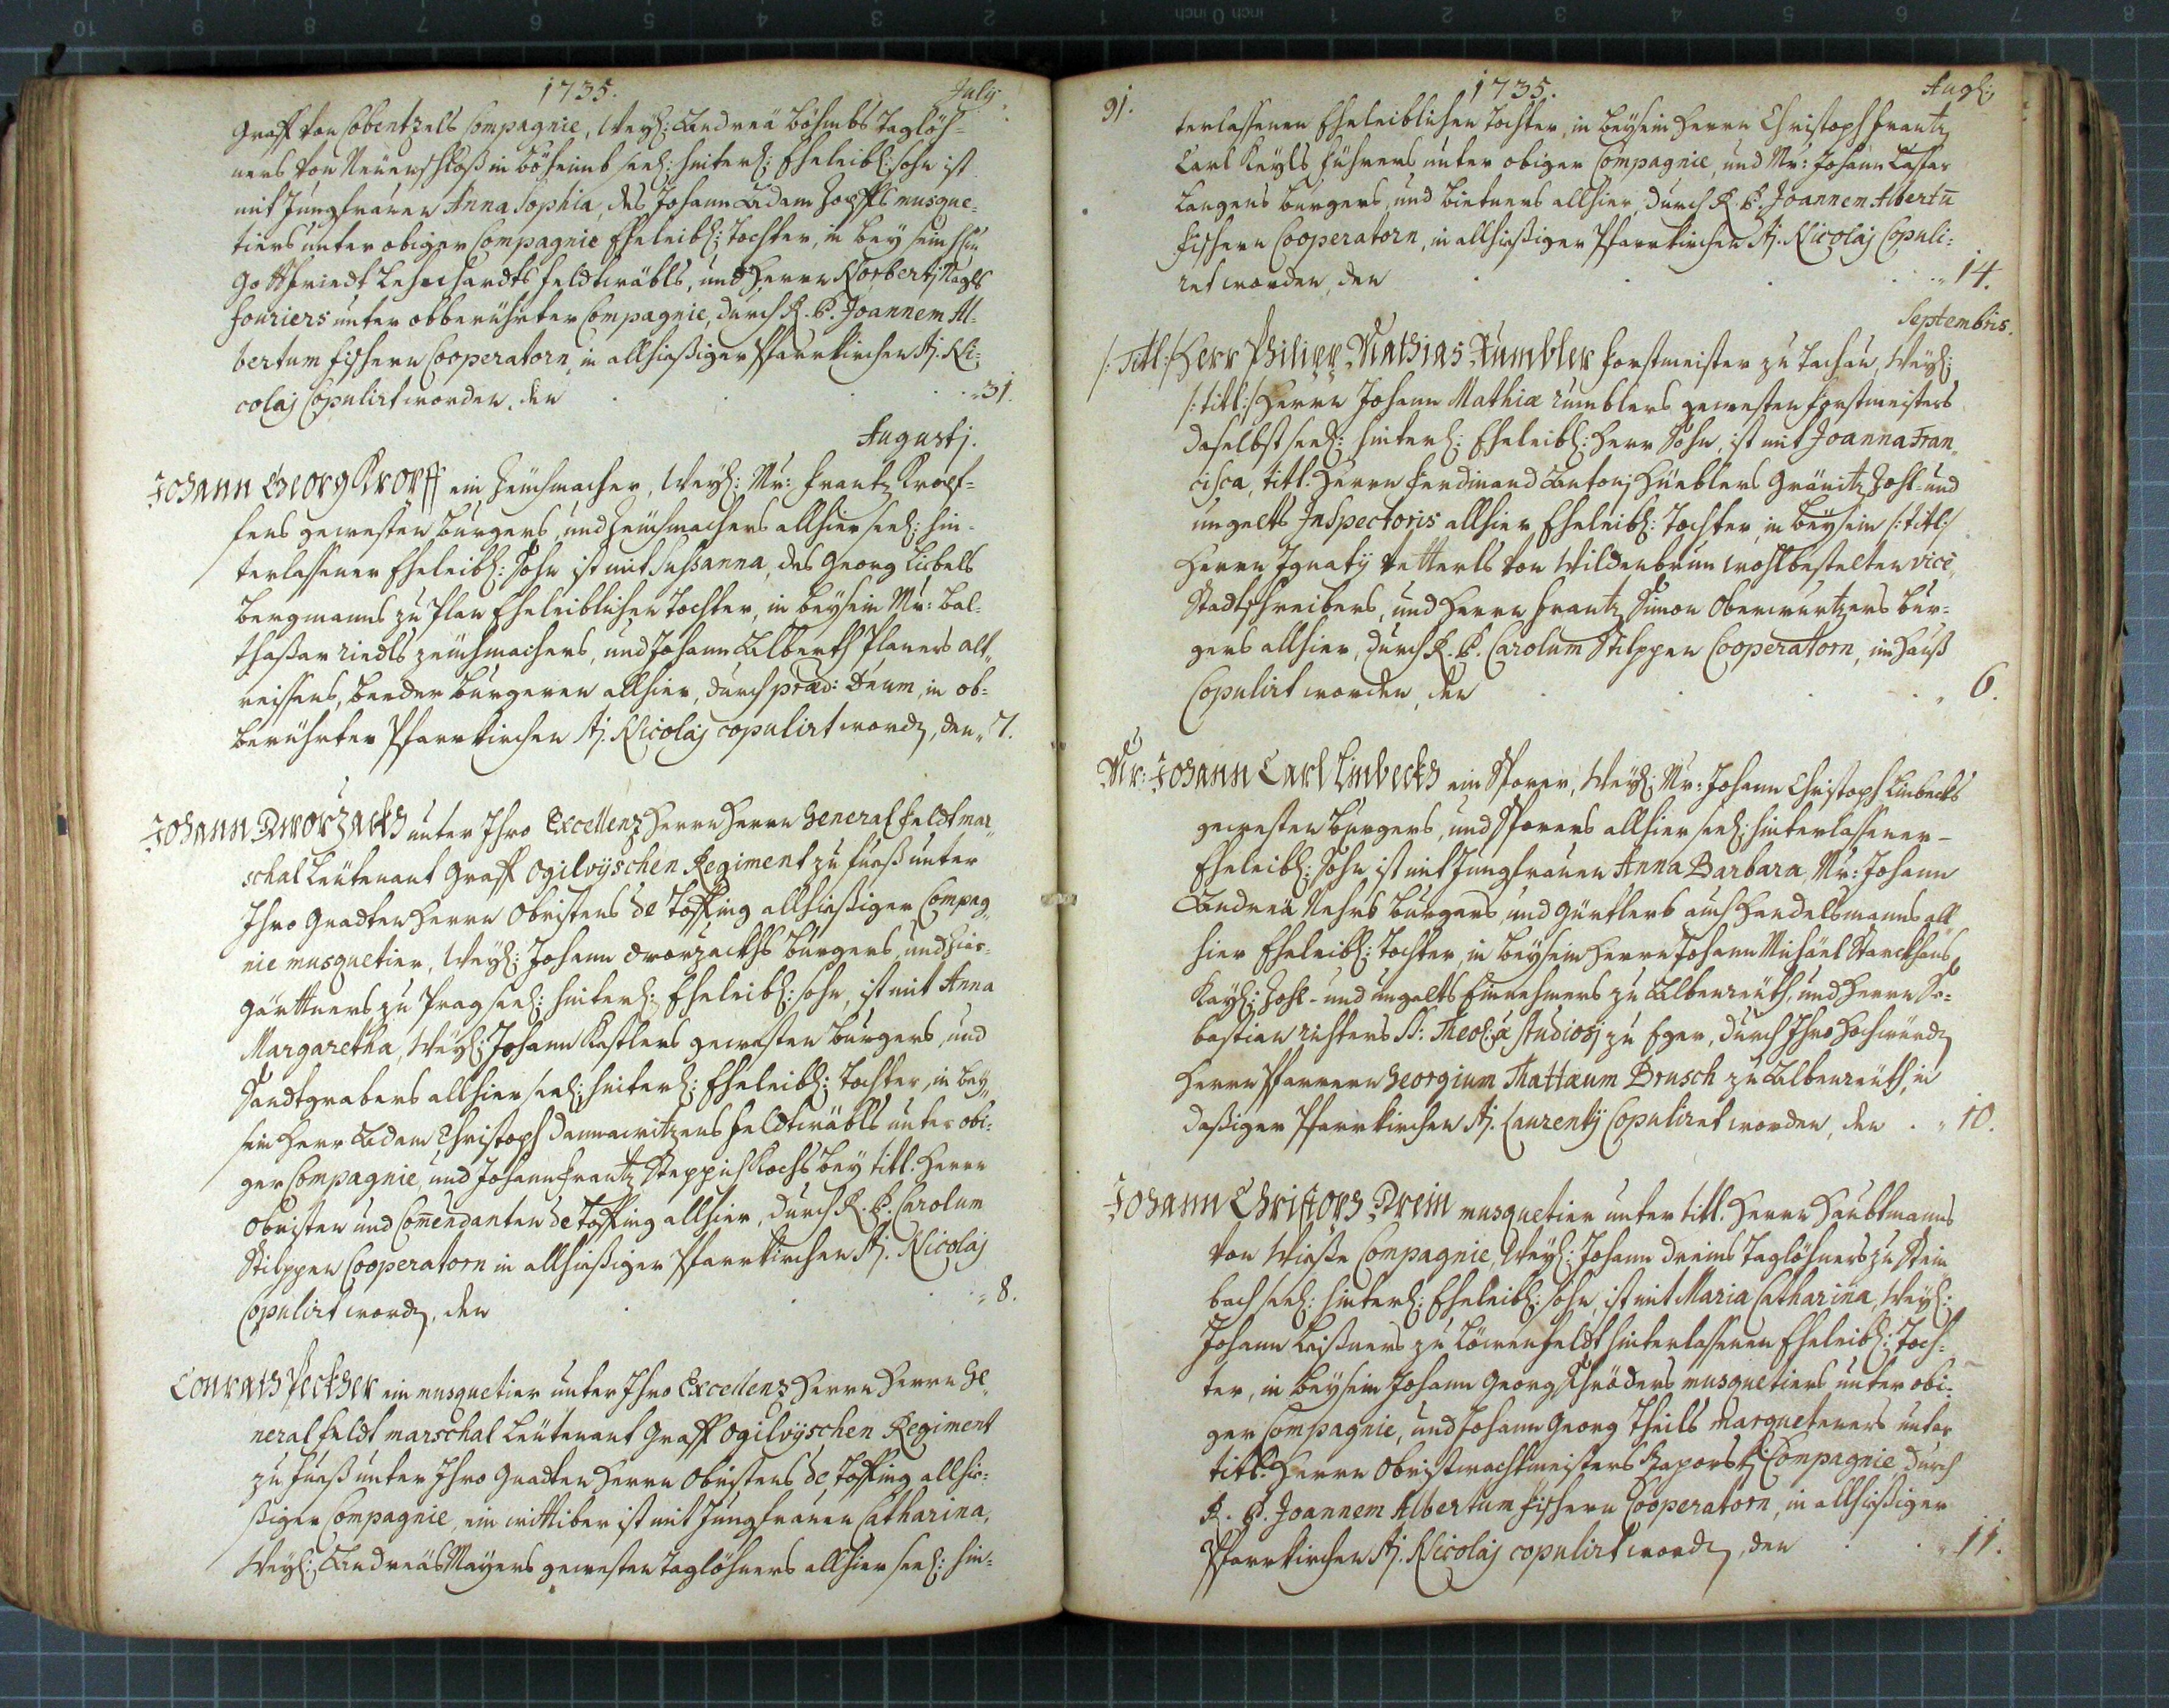 1735. July
Graff von Cobentzels Compagnie, Weyl: Andreä Böhmbs Taglöh-
ners von Neüenschloß in Böheimb seel: hinterl: Eheleibl: sohn ist
mit Jungfrauen Anna Sophia, des Johann Adam Zopffs musque-
tiers unter obiger Compagnie Eheleibl: Tochter, in bey sein
Gottfriedt Lehnhardts feldtwäbls, und Herrn Norbertj Nagls
fouriers unter obberührter Compagnie, durch R. P. Joannem Al-
bertum fischern Cooperatorn, in allhießiger Pfarrkirchen Stj. Ni-
colaj Copulirt worden, den 31.
Augustj.
Johann Georg Kropff ein Zeüchmacher, Weyl: Mr: Frantz Kropf-
fens gewesten burgers, und Zeüchmachers allhier seel: hin-
terlassener Eheleibl: Sohn ist mit Susanna, des Georg Liebels
bergmanns zu Plan Eheleiblichen Tochter, in beysein Mr: Bal-
thasar Riedls zeüchmachers, und Johann Alberth Planers alt-
reissens, beeder burgeren allhier, durch præd: Deum, in ob-
berührter Pfarrkirchen Stj. Nicolaj copulirt word, den 7.
Johann Dworzackh unter Ihro Excellenz Herrn Herrn General feldt mar-
schal Leütenant Graff Ogilvyschen Regiment zu fueß unter
Ihro Gnadten Herrn Obristens de Töffing allhießiger Compag-
nie musquetier, Weyl: Johann dworzackhs burgers, und Zier-
gärttners zu Prag seel: hinterl: Eheleibl: sohn, ist mit Anna
Margaretha, Weyl: Johann Kastlers gewesten burgers, und
Sandtgrabers allhier seel: hinterl: Eheleibl: Tochter, in bey-
sein Herr Adam Christoph dannawitzens feldtwäbls unter obi-
ger Compagnie, und Johann Frantz Steppich Kochs bey titl. Herrn
Obristen und Comendanten de Töffing allhier, durch R. P. Carolum
Stilppen Cooperatorn in allhießiger Pfarrkirchen Stj. Nicolaj
Copulirt word, den 8.
Conrath Peckher ein musquetier unter Ihro Excellenz Herrn Herrn Ge-
neral feldt marschal Leütenant Graff Ogilvyschen Regiment
zu fueß unter Ihro Gnadten Herrn Obristens de Töffing allhie-
ßiger Compagnie, ein wittiber ist mit Jungfrauen Catharina,
Weyl: Andreäs Mayers gewesten taglöhners allhier seel: hin-
91. 1735. Aug:
terlassenen Eheleiblichen Tochter, in beysein Herrn Christoph Frantz
Carl Keyls führers unter obiger Compagnie, und Mr: Johann Casper
Langens burgers, und bietners allhier, durch R. P. Joannem Albertu
fischern Cooperatorn, in allhießiger Pfarrkirchen Stj. Nicolaj Copuli-
ret worden, den 14.
Septembris.
/: Titl :/ Herr Philipp Mathias Rumbler forstmeister zu Tachau, Weyl:
/: titl :/ Herrn Johann Mathiæ rumblers gewesten forstmeisters
daselbst seel: hinterl: Eheleibl: Herr Sohn, ist mit Joanna Fran-
cisca, titl. Herrn Ferdinand Antonj Hüeblers Gränitz Zohl- und
ungelts Inspectoris allhier Eheleibl: Tochter, in beysein /: titl :/
Herrn Ignatij vetterls von Wildenbrun wohlbestelten vice
Stadtschreibers, und Herrn Frantz Simon Oberwurtzers bur-
gers allhier, durch R. P. Carolum Stilppen Cooperatorn, im Hauß
Copulirt worden, den 6.
Mr: Johann Carl Limbeckh ein Sporer, Weyl: Mr: Johann Christoph Limbecks
gewesten burgers, und Sporers allhier seel: hinterlassener
Eheleibl: Sohn ist mit Jungfrauen Anna Barbara, Mr: Johann
Andreä Nehrs burgers, und gürtlers auch Handelsmanns all-
hier Eheleibl: Tochter, in beysein Herrn Johann Michäel Starckhens
Kayl: Zohl- und ungelts Einnehmers zu Albenreüth, und Herrn Se-
bastian richters SS: Theol:æ studiosj zu Eger, durch Ihro Hochwürd
Herrn Pfarrern Georgium Thattæum Brusch zu Albenreüth, in
daßiger Pfarrkirchen Stj. Laurentij Copuliret worden, den 10.
Johann Christoph Drein musquetier unter titl. Herrn Haubtmanns
von Wieße Compagnie, Weyl: Johann dreins Taglöhners zu Stein-
bach seel: hinterl: Eheleibl: sohn, ist mit Maria Catharina, Weyl:
Johann Leißners zu Löwenfeldt hinterlassenen Eheleibl: Toch-
ter, in beysein Johann Georg Schröders musquetiers unter obi-
ger Compagnie, und Johann Georg Theils Marqueteners unter
titl: Herrn Obristwachtmeisters Kaporstj Compagnie, durch
R. P. Joannem Albertum fischern Cooperatorn, in allhießiger
Pfarrkirchen Stj. Nicolaj copulirt word, den 11.